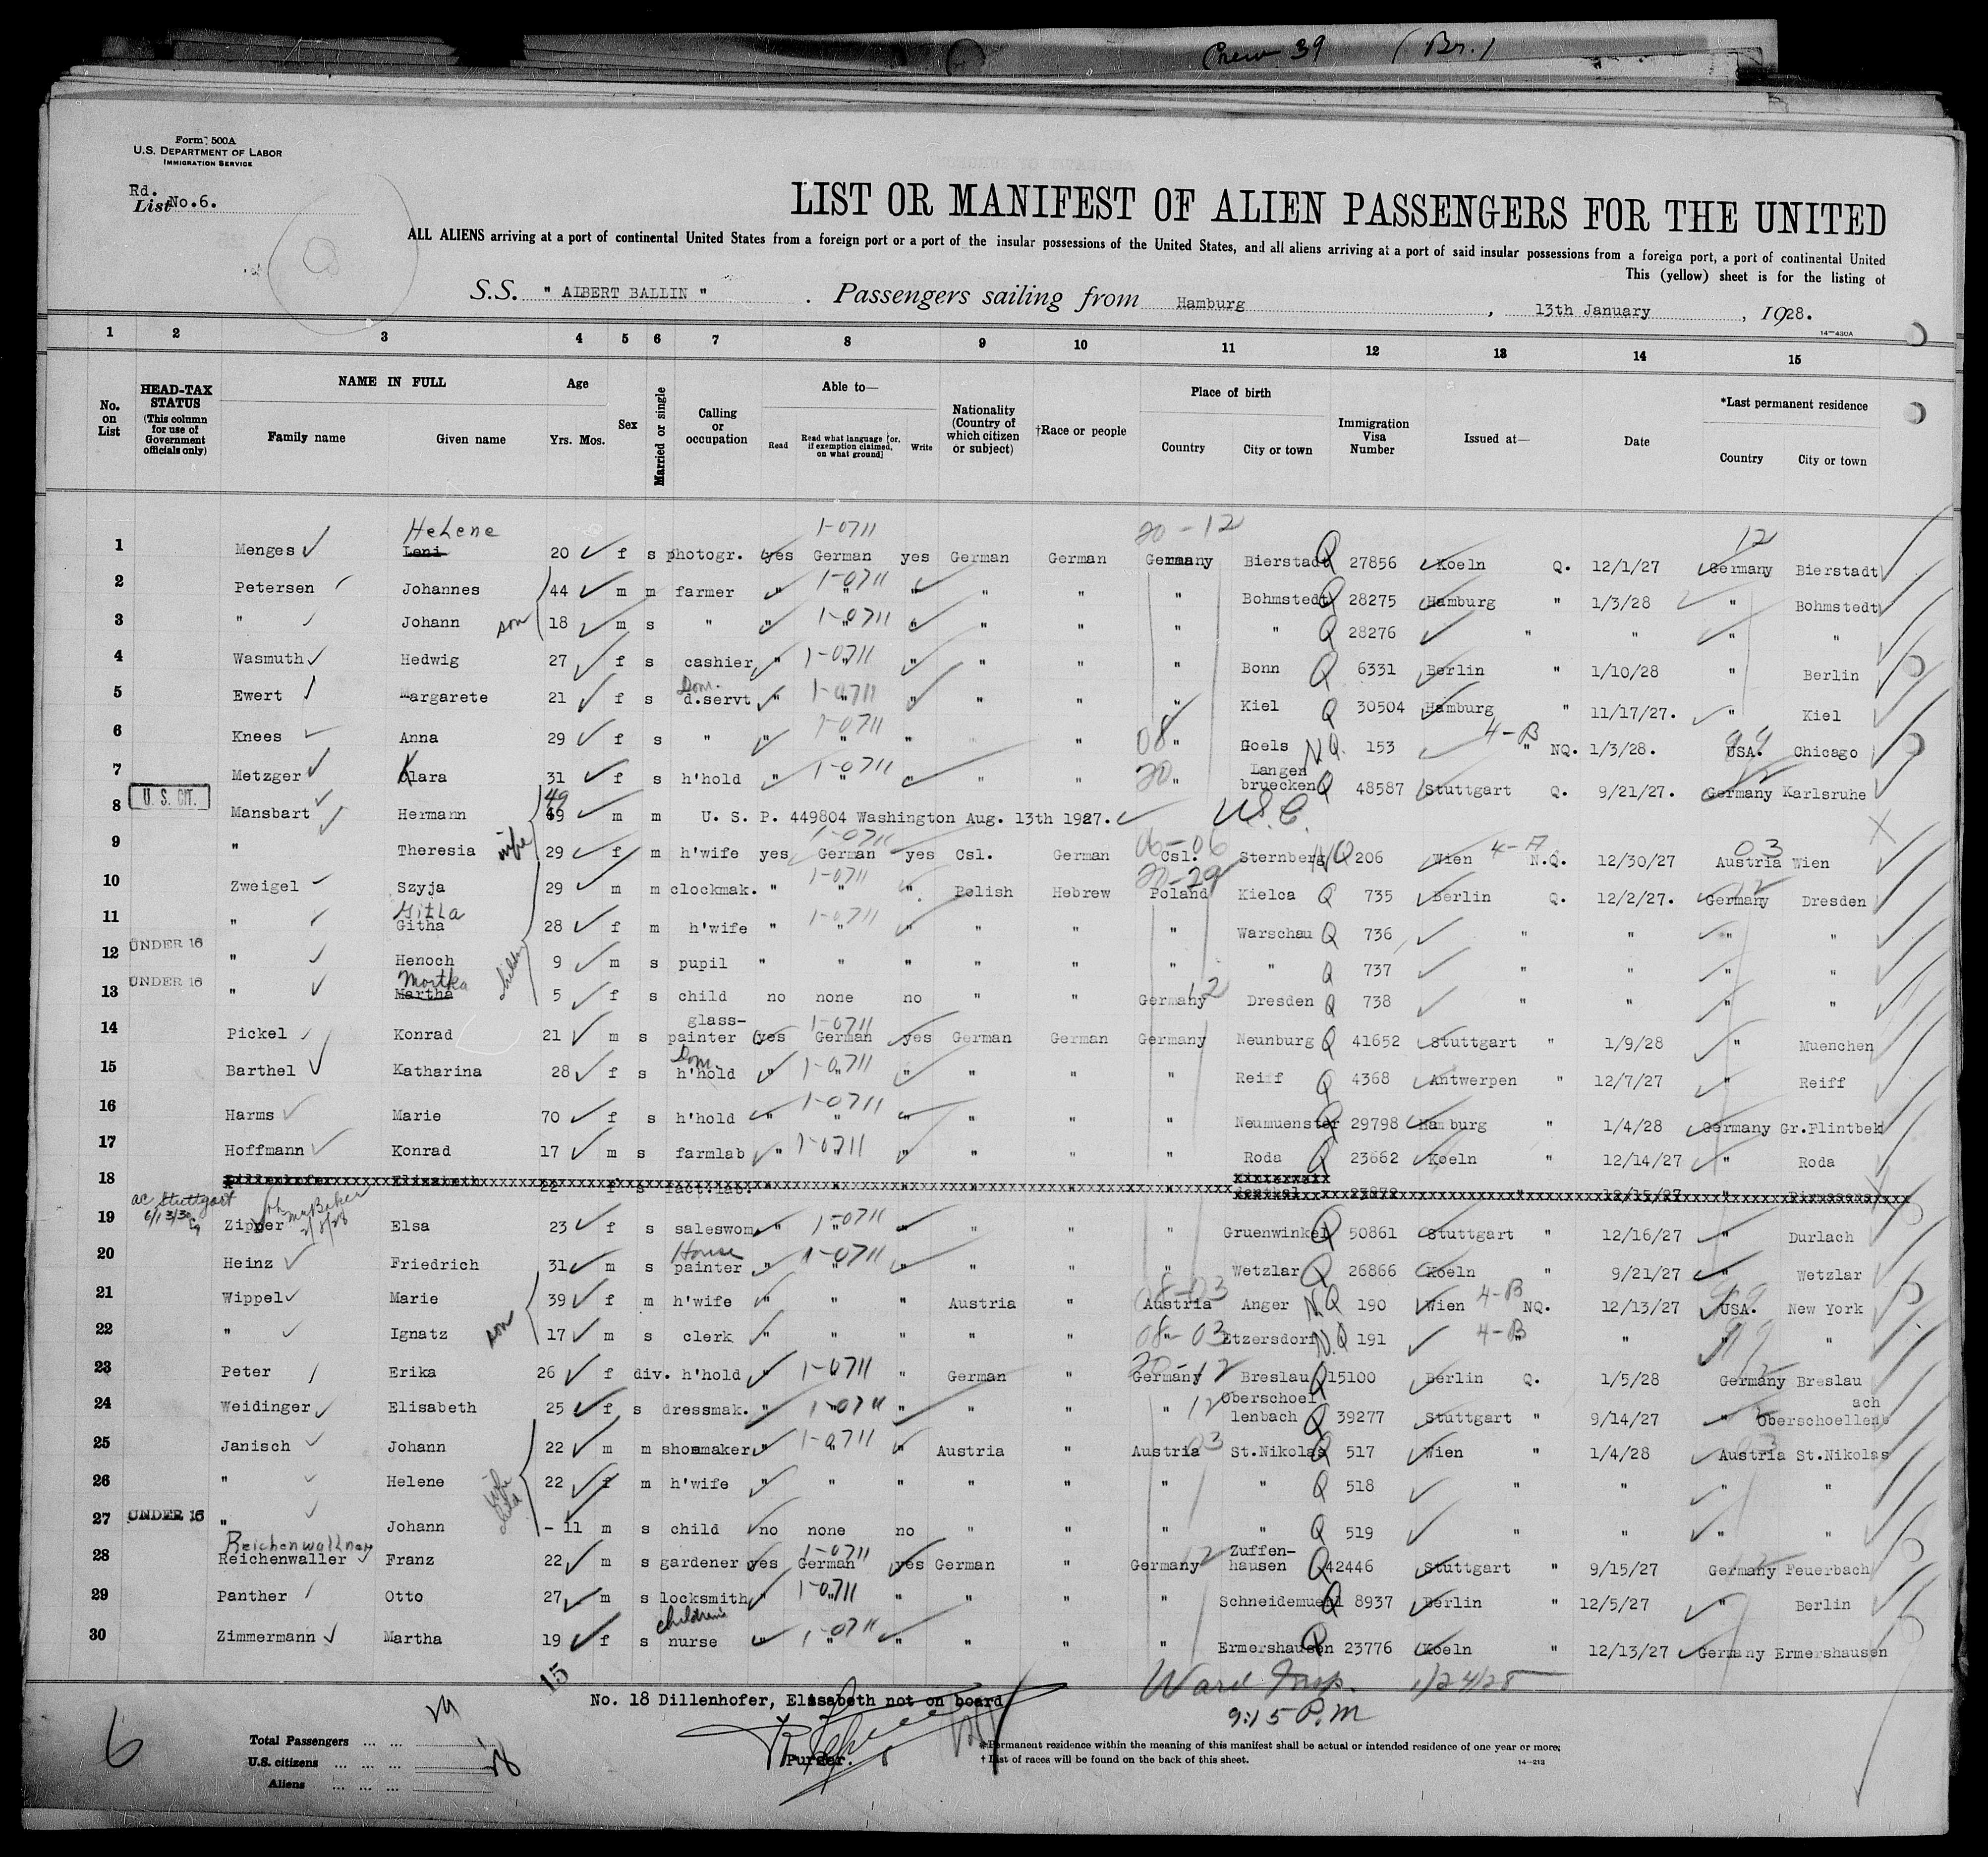 Crew 39 (Br.)
Form 500A
U.S. DEPARTMENT OF LABOR
IMMIGRATION SERVICE
Rd.
List No.6.
LIST OR MANIFEST OF ALIEN PASSENGERS FOR THE UNITED
ALL ALIENS arriving at a port of continental United States from a foreign port or a port of the insular possessions of the United States, and all aliens arriving at a port of said insular possessions from a foreign port, a port of continental United
This (yellow) sheet is for the listing of
S.S. " ALBERT BALLIN " . Passengers sailing from Hamburg , 13th January , 1928.
14—430A
1 2 3 4 5 6 7 8 9 10 11 12 13 14 15
No. on List
HEAD-TAX STATUS (This column for use of Government officials only)
NAME IN FULL
Family name Given name
Age
Yrs. Mos.
Sex
Married or single
Calling or occupation
Able to—
Read
Read what language [or, if exemption claimed, on what ground]
Write
Nationality (Country of which citizen or subject)
†Race or people
Place of birth
Country City or town
Immigration Visa Number
Issued at—
Date
*Last permanent residence
Country City or town
Helene 1-0711 20-12 12
1 Menges Leni 20 f s photogr. yes German yes German German Germany Bierstadt Q 27856 Koeln Q. 12/1/27 Germany Bierstadt
2 Petersen Johannes 44 m m farmer " 1-0711 " " " " " Bohmstedt Q 28275 Hamburg " 1/3/28 " Bohmstedt
3 " Johann son 18 m s " " 1-0711 " " " " " " Q 28276 " " " "
4 Wasmuth Hedwig 27 f s cashier " 1-0711 " " " " " Bonn Q 6331 Berlin " 1/10/28 " Berlin
Dom.
5 Ewert Margarete 21 f s d.servt " 1-0711 " " " " " Kiel Q 30504 Hamburg " 11/17/27. " Kiel
6 Knees Anna 29 f s " " 1-0711 " " " 08 " Goels NQ. 153 " 4-B NQ. 1/3/28. 99 USA. Chicago
7 Metzger Klara 31 f s h'hold " 1-0711 " " " " 20 " Langen bruecken Q 48587 Stuttgart Q. 9/21/27. 12 Germany Karlsruhe
U. S. CIT.
49
8 Mansbart Hermann m m U. S. P. 449804 Washington Aug. 13th 1927. U.S.C.
9 " Theresia wife 29 f m h'wife yes 1-0711 German yes Csl. German 06-06 Csl. Sternberg NQ 206 Wien 4-A N.Q. 12/30/27 03 Austria Wien
10 Zweigel Szyja 29 m m clockmak. " 1-0711 " " Polish Hebrew Poland Kielca Q 735 Berlin Q. 12/2/27. 12 Germany Dresden
Gitla
11 " Githa 28 f m h'wife " 1-0711 " " " " " Warschau Q 736 " " " "
UNDER 16
12 " Henoch children 9 m s pupil " " " " " " " Q 737 " " " "
UNDER 16
Mortka
13 " Martha 5 f s child no none no " " Germany 12 Dresden Q 738 " " " "
14 Pickel Konrad 21 m s glass- painter yes 1-0711 German yes German German Germany Neunburg Q 41652 Stuttgart " 1/9/28 " Muenchen
Dom.
15 Barthel Katharina 28 f s h'hold " 1-0711 " " " " " Reiff Q 4368 Antwerpen " 12/7/27 " Reiff
16 Harms Marie 70 f s h'hold " 1-0711 " " " " " Neumuenster Q 29798 Hamburg " 1/4/28 Germany Gr.Flintbek
17 Hoffmann Konrad 17 m s farmlab " 1-0711 " " " " " Roda Q 23662 Koeln " 12/14/27 " Roda
18 Dillenhofer Elisabeth 22 f s fact.lab. " " " " " " 23872 " 12/15/27 "
ac Stuttgart
6/13/30
Mr Baker
2/8/28
19 Zipper Elsa 23 f s saleswom. " 1-0711 " " " " " Gruenwinkel Q 50861 Stuttgart " 12/16/27 " Durlach
House
20 Heinz Friedrich 31 m s painter " 1-0711 " " " " " Wetzlar Q 26866 Koeln " 9/21/27 " Wetzlar
21 Wippel Marie 39 f m h'wife " " " Austria " 08-03 Austria Anger NQ 190 Wien 4-B NQ. 12/13/27 99 USA. New York
22 " Ignatz son 17 m s clerk " " " " " 08-03 " Etzersdorf N.Q 191 4-B " " 99 " "
23 Peter Erika 26 f div. h'hold " 1-0711 " German " 20-12 Germany Breslau Q 15100 Berlin Q. 1/5/28 12 Germany Breslau
24 Weidinger Elisabeth 25 f s dressmak. " 1-0711 " " " " " 12 Oberschoel lenbach Q 39277 Stuttgart " 9/14/27 " Oberschoellenb ach
25 Janisch Johann 22 m m shoemaker " 1-0711 " " Austria " Austria 03 St.Nikolas Q 517 Wien " 1/4/28 03 Austria St.Nikolas
26 " Helene wife 22 f m h'wife " " " " " " " Q 518 " " " "
27 UNDER 16 " Johann child - 11 m s child no none no " " " " Q 519 " " " "
Reichenwallner
28 Reichenwaller Franz 22 m s gardener yes 1-0711 German yes German " Germany 12 Zuffen- hausen Q 42446 Stuttgart " 9/15/27 12 Germany Feuerbach
29 Panther Otto 27 m s locksmith " 1-0711 " " " " " Schneidemuehl Q 8937 Berlin " 12/5/27 " Berlin
children's
30 Zimmermann Martha 19 f s nurse " 1-0711 " " " " " Ermershausen Q 23776 Koeln " 12/13/27 Germany Ermershausen
15
No. 18 Dillenhofer, Elisabeth not on board
Ward Insp. 1/24/28
9:15 P.M
6
Total Passengers ... ...
U.S. citizens ... ... ...
Aliens ... ... ...
Purser.
*Permanent residence within the meaning of this manifest shall be actual or intended residence of one year or more.
† List of races will be found on the back of this sheet.
14—213